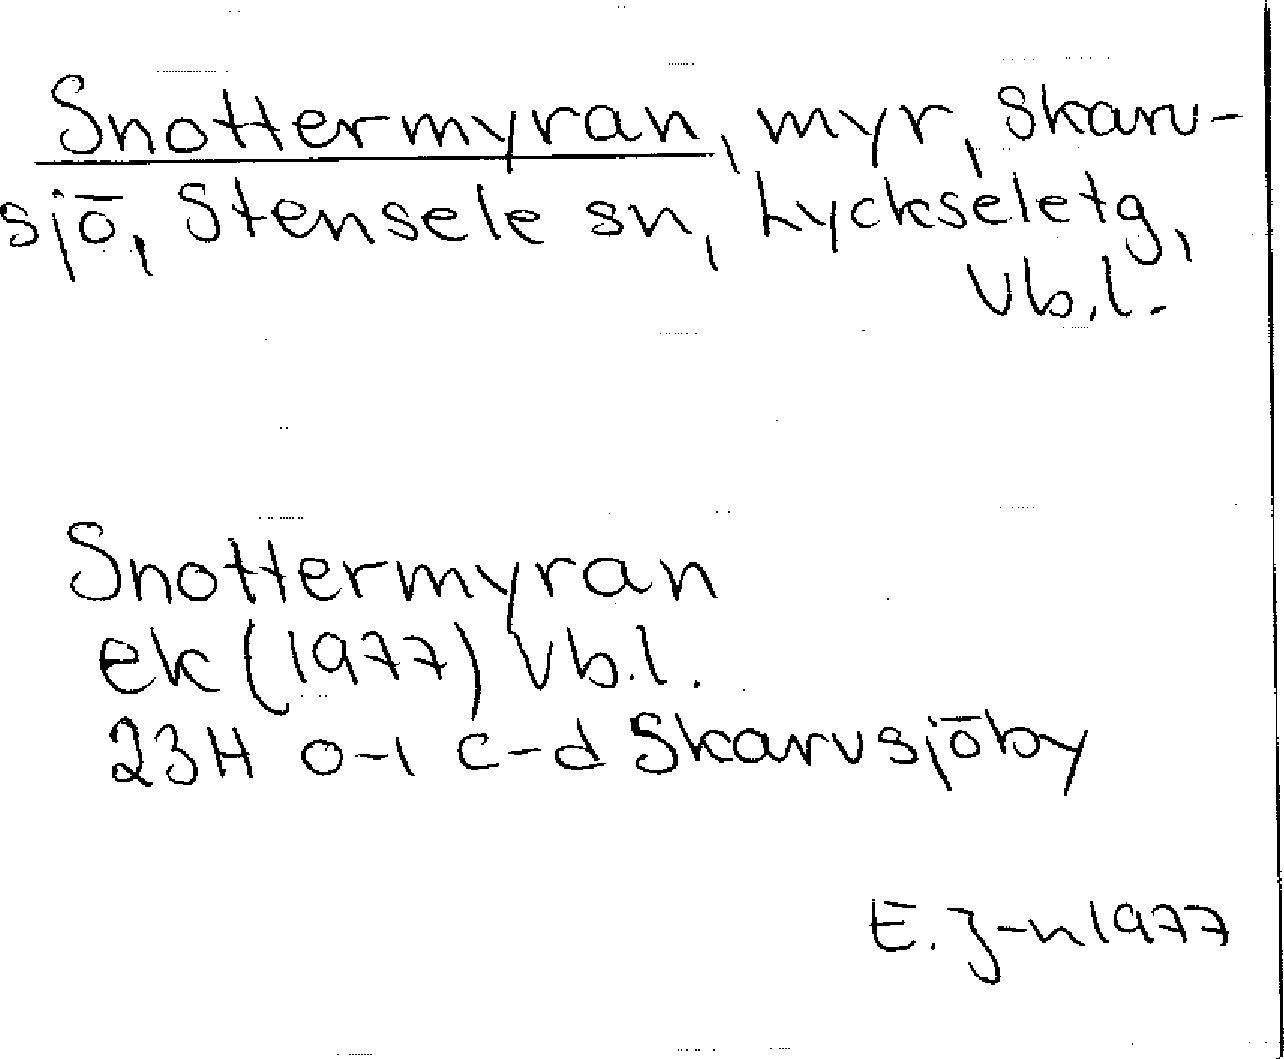 Snottermyran, myr, Skarv-
sjö, Stensele sn, Lyckseletg,
Vb.l.
Snottermyran
ek (1977) Vb.l.
23H 0-1 c-d Skarvsjöby
E. J-n 1977